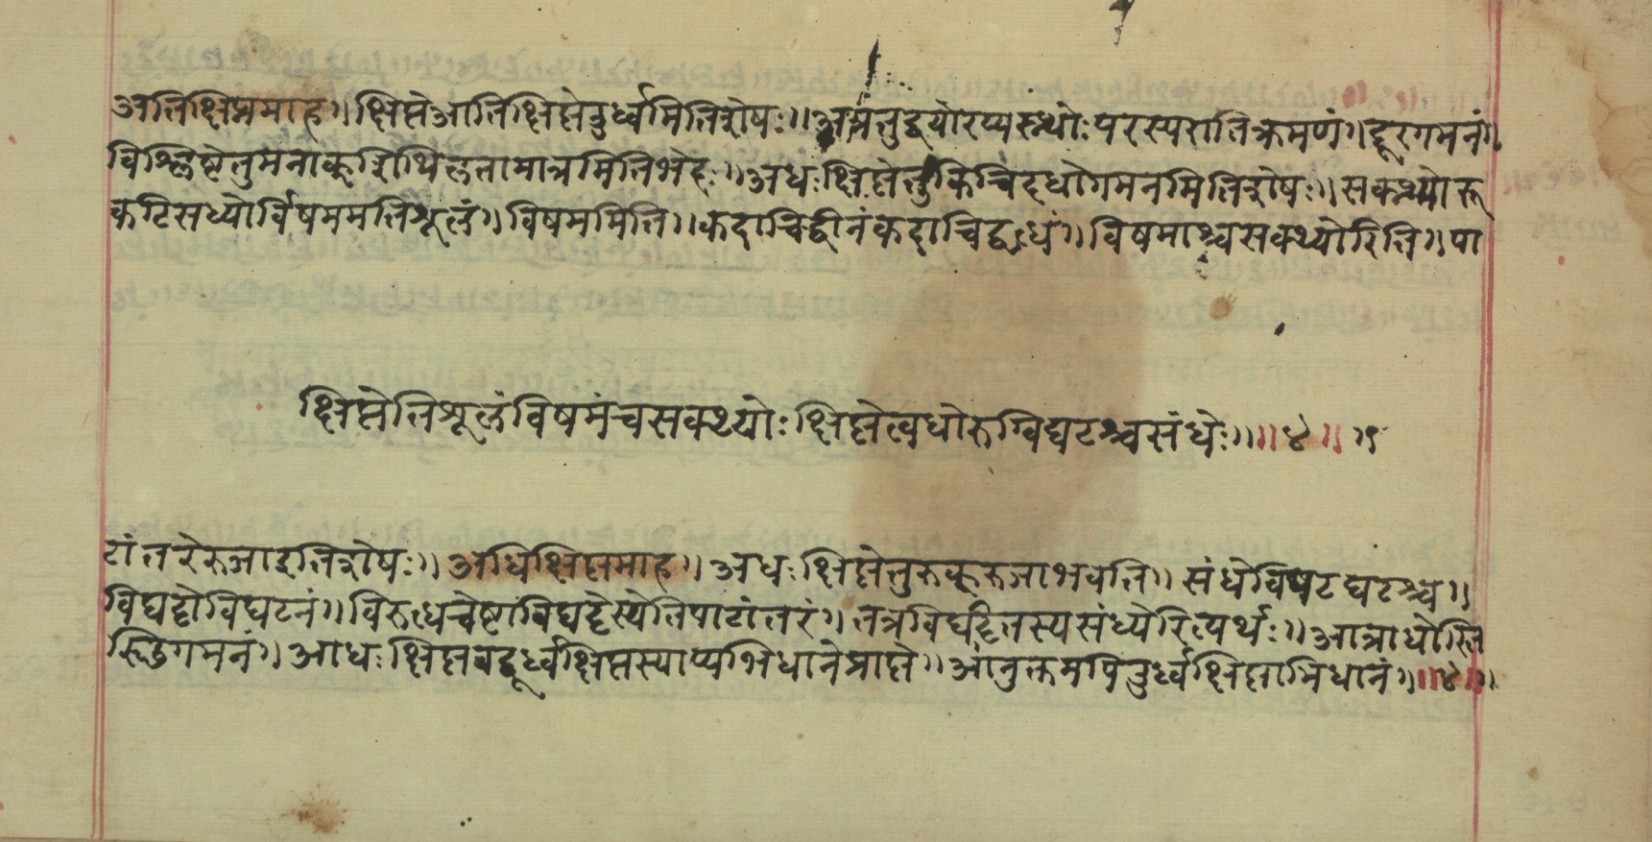 अतिक्षिप्तमाह॥ क्षिप्तेआतिक्षिप्तेवुर्ध्वमितिशेषः॥ तुद्वयोरप्यस्थ्योः परस्परातिक्रमणं॥ दूरगमनं॥
विश्लिष्टेतुमनाक्शिथिलतामात्रमितिभेदः॥ अधःक्षिप्तेतुकिंचिदधोगमनमितिशेषः॥ सक्थ्योरू
कटिसध्योर्विषममतिशूलं॥ विषममिति॥ कदाचिद्धीनंकदाचिदृधं॥ विषमाश्चसक्थ्योरिति॥ पा
क्षिप्तेतिशूलंविषमंचसक्थ्योः क्षिप्तेत्वधोरुग्विघटश्चसंधेः॥ ॥४॥
ठांतरेरुजाइतिशेषः॥ अधिक्षिप्तमाह॥ अधःक्षिप्तेतुरुक्रुजाभवति॥ संधेविघटघटश्च॥
विघट्टोविघटनं॥ विरुध्धचेष्टाविघट्टेस्येतिपाठांतरं॥ तत्रविघट्टितस्यसंध्येरित्यर्थः॥ आत्राधोस्ति
गमनं॥ आधःक्षिप्तवदूर्ध्वक्षिप्तस्याप्यभिधानेप्राप्ते॥ आनुक्तमपितुर्ध्वक्षिप्ताभिधानं॥ ॥४॥